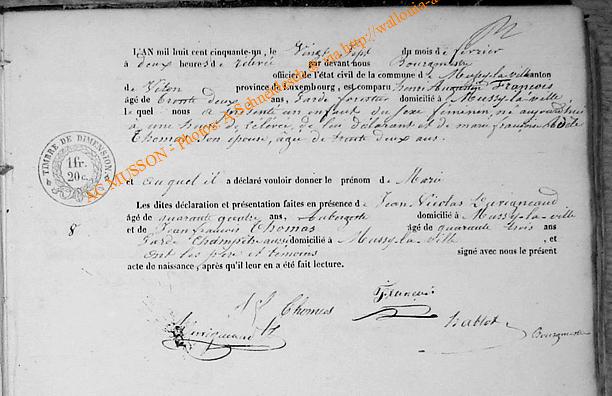 L'AN mil huit cent cinquante-un, le Vingt Sept du mois de février
à deux heures de relevée par devant nous Bourgmestre
officier de l'état civil de la commune de Mussy-la-ville canton
de Virton province de Luxembourg, est comparu Augustin François
âgé de trente deux ans, Garde forestier domicilié à Mussy-la-ville
lequel nous a présenté un enfant du sexe féminin, né aujourd'hui
à une heure de relevée, de lui déclarant et de marie françoise
Thomas son épouse, âgée de trente deux ans.
et auquel il a déclaré vouloir donner le prénom de Marie
Les dites déclaration et présentation faites en présence de Jean Nicolas
âgé de quarante quatre ans, Aubergiste domicilié à Mussy-la-ville
8 et de Jean françois Thomas âgé de quarante trois ans
Garde Champêtre aussi domicilié à Mussy-la-ville, et
ont les père et temoins signé avec nous le présent
acte de naissance, après qu'il leur en a été fait lecture.
TIMBRE DE DIMENSION
1 fr.
20 c.
AC MUSSON - Photos: A Schneidesch, via http://wallonia-
Thomas
François
Bourgmestre